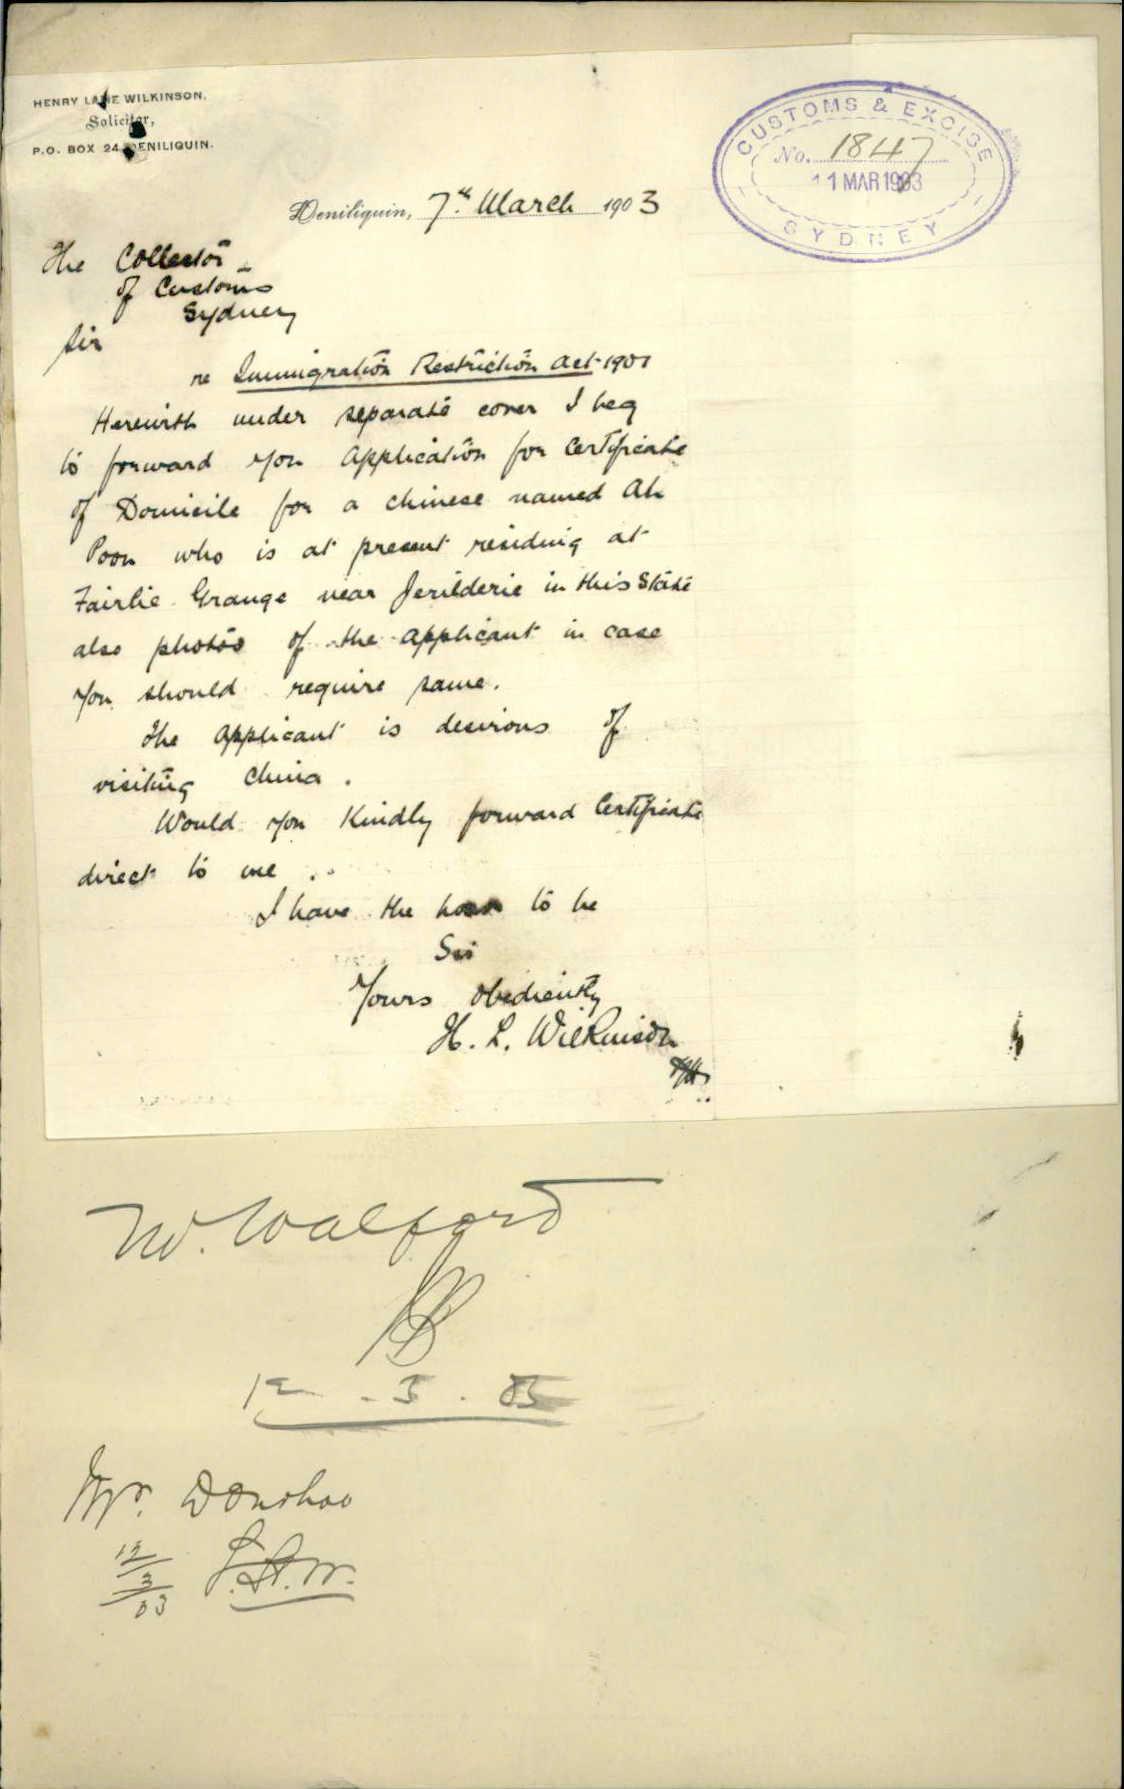 HENRY LANE WILKINSON,
Solicitor,
P.O. BOX 24 DENILIQUIN.
CUSTOMS & EXCISE
No. 1847
11 MAR 1903
SYDNEY
Deniliquin, 7th. March 1903
The Collector
of Customs
Sydney
Sir
re Immigration Restriction Act 1901
Herewith under separate cover I beg
to forward you Application for Certificate
of Domicile for a Chinese named Ah
Poon who is at present residing at
Fairlie Grange near Jerilderie in this State
also photos of the applicant in case
you should require same.
The applicant is desirous of
visiting China.
Would you Kindly forward Certificate
direct to me.
I have the honor to be
Sir
Yours obediently
H. L. Wilkinson
Walford
12 . 3 . 03
Mr. Donohoe
12
3
03